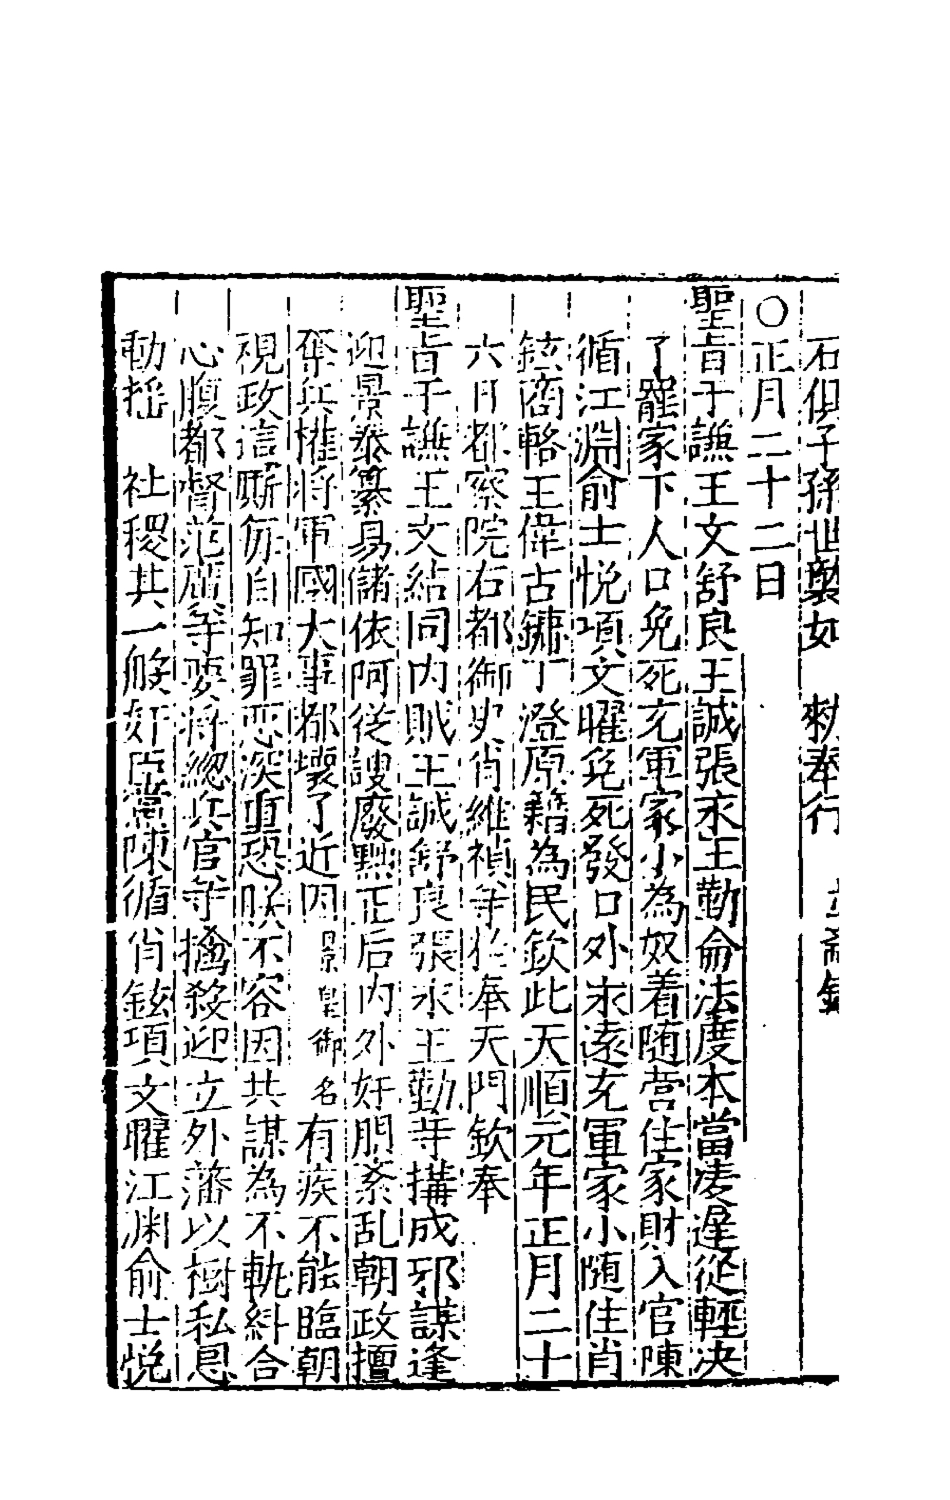 石俱子孫世襲如　勑奉行　立齋錄
○正月二十二日
聖旨于謙王文舒良王誠張永王勤侖法度本當凌遲從輕决
了罷家下人口免死充軍家小為奴着随营住家財入官陳
循江淵俞士悦項文曜免死發口外永遠充軍家小随住肖
鉉商輅王偉古鏞丁澄原籍為民欽此天順元年正月二十
六日都察院右都御史肖維禎等於奉天門欽奉
聖旨于謙王文結同内賊王誠舒良張永王勤等搆成邪謀逢
迎景泰纂易儲依阿從諛廢黜正后内外奸朋紊乱朝政擅
奪兵權将軍國大事都壞了近因景皇御名有疾不能臨朝
視政這厮每自知罪恶深重恐朕不容因共謀為不軌糾合
心腹都督范廣等要将緫兵官等擒殺迎立外藩以樹私恩
動揺　社稷其一般奸臣黨陳循肖鉉項文曜江渊俞士悦